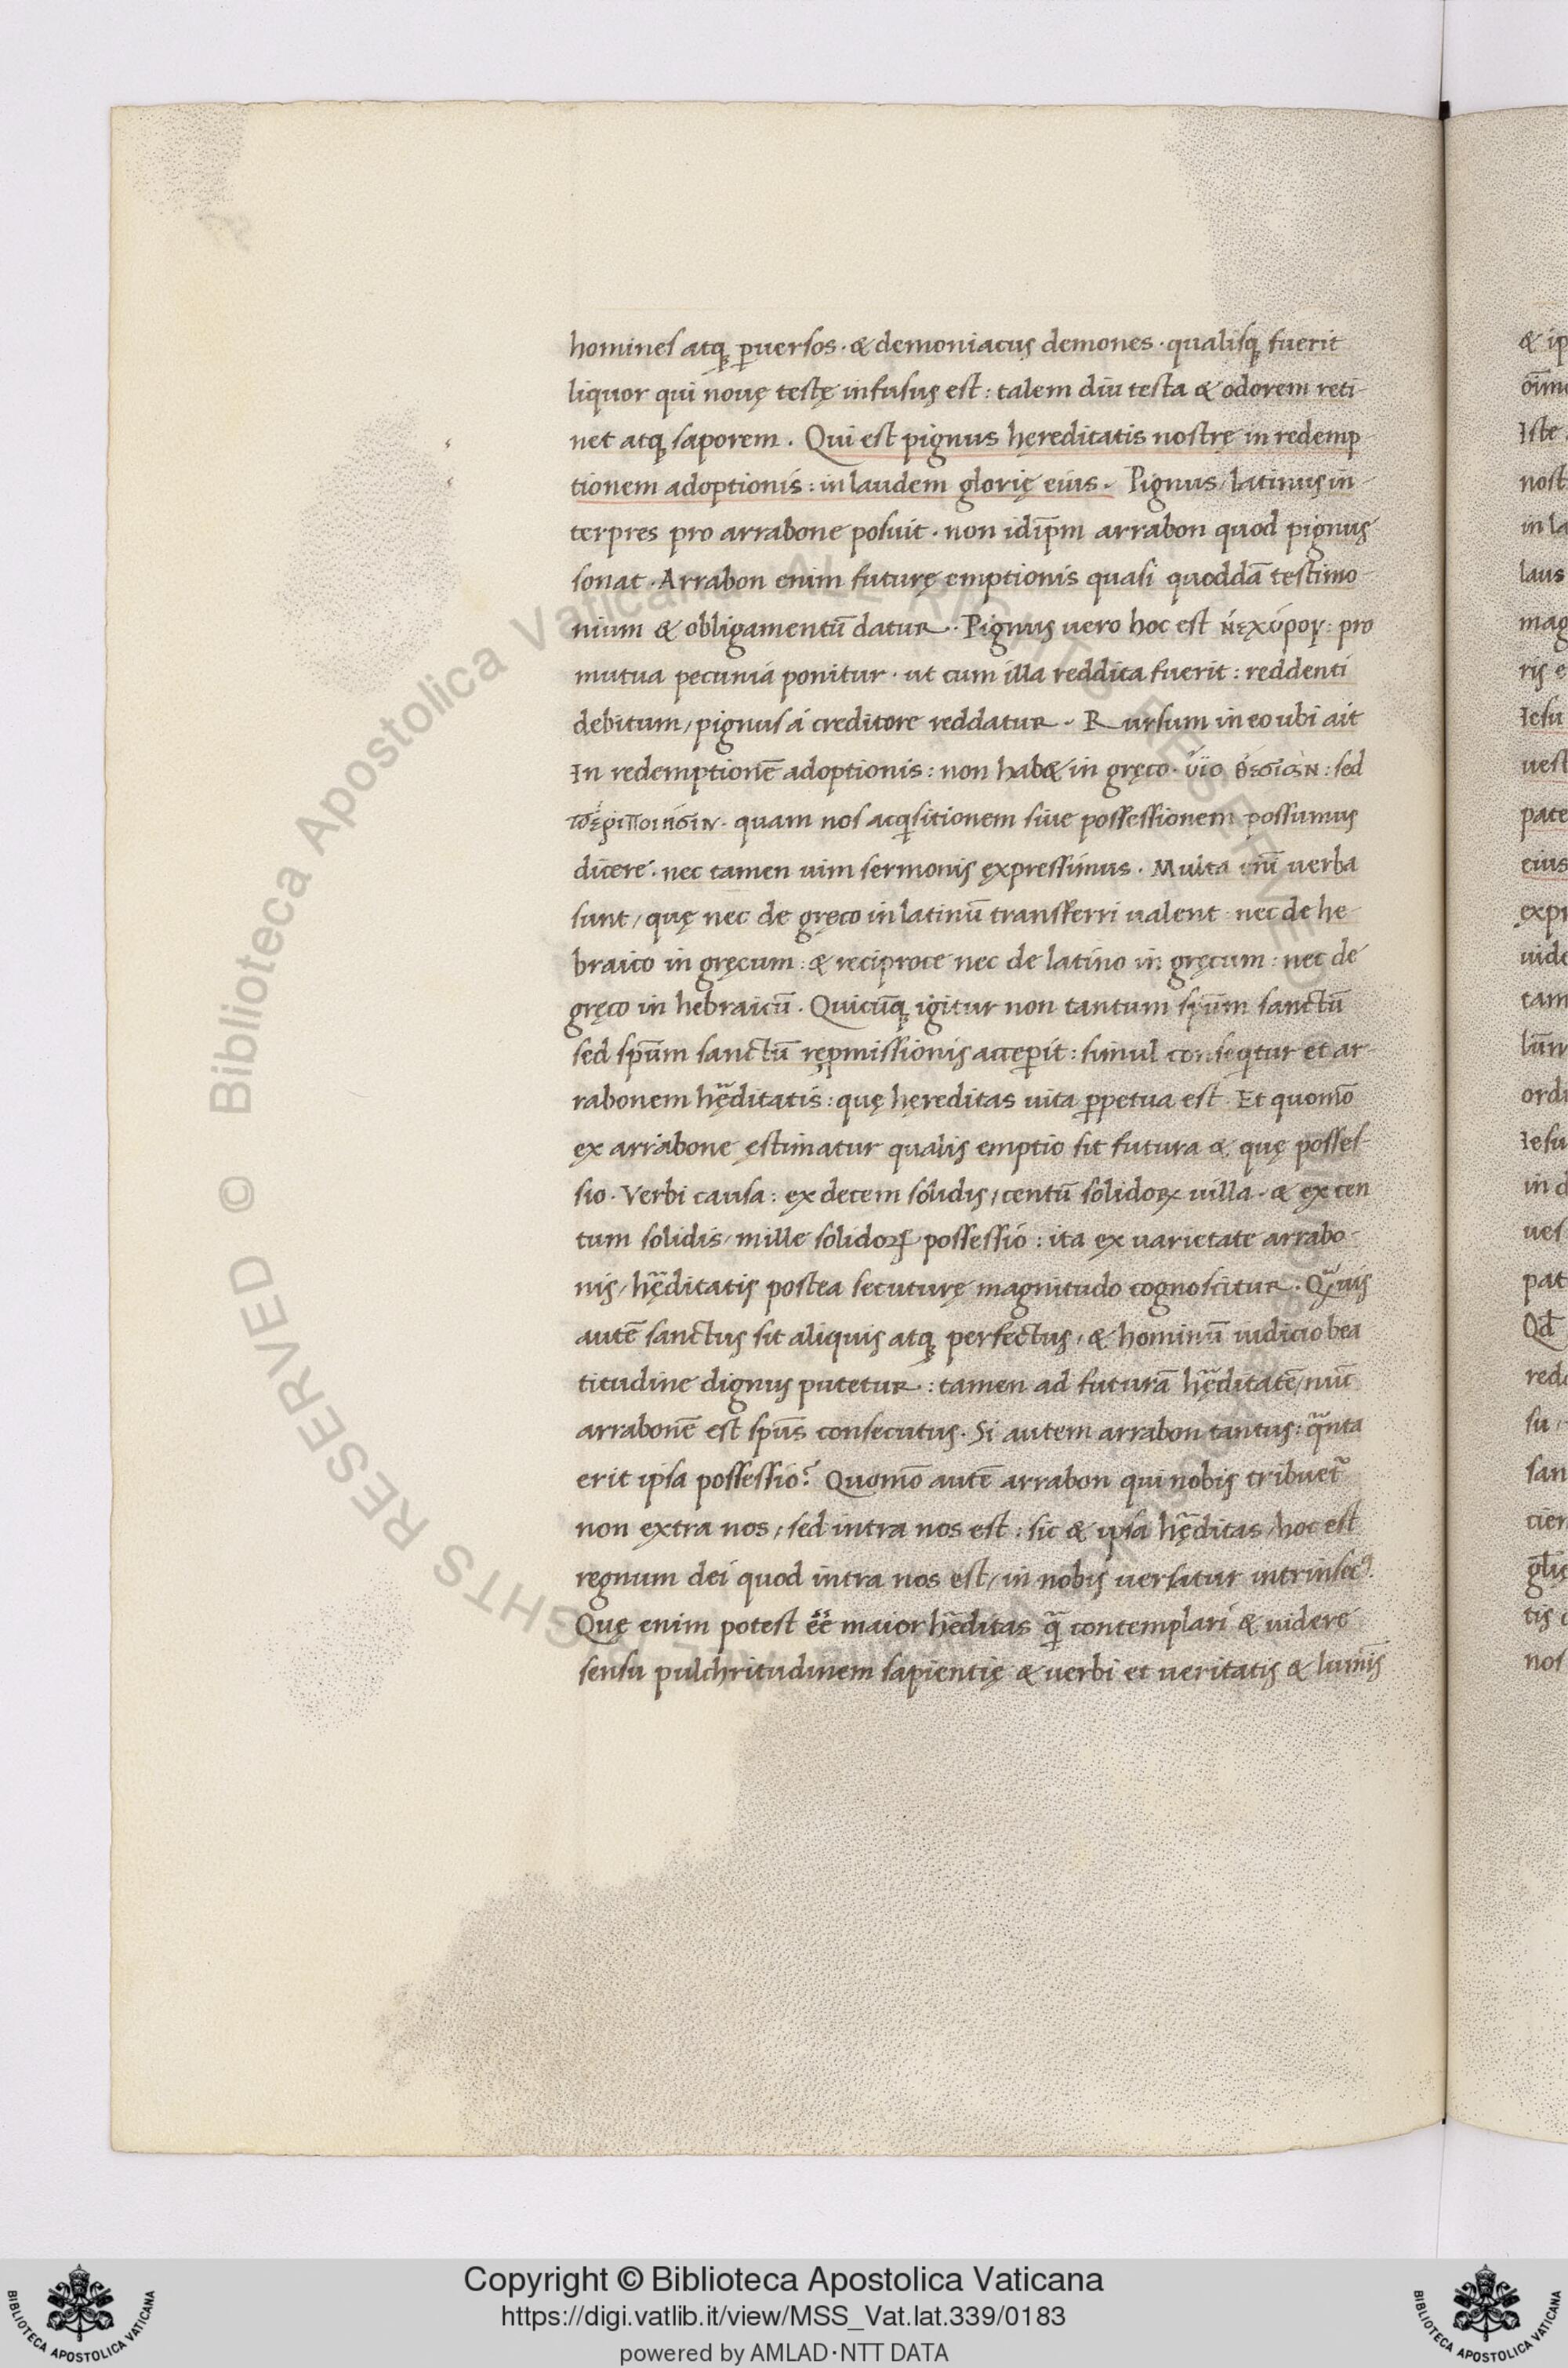 homines atq̨ ꝑuersos · & demoniacus demones · qualisq̨ fuerit
liquor qui nouę testę infusus est : talem diu testa & odorem reti-
net atq̨ saporem . Qui est pignus hęreditatis nostrę in redemp
tionem adoptionis : in laudem glorię eius . Pignus / latinus in-
terpres pro arrabone posuit · non idip̄m arrabon quod pignus
sonat · Arrabon enim futurę emptionis quasi quoddā testimo-
nium & obligamentū datur . Pignus uero hoc est : pro
mutua pecunia ponitur · ut cum illa reddita fuerit : reddenti
debitum / pignus á creditore reddatur . Rursum in eo ubi ait
In redemptionē adoptionis : non hab& in gręco · ὑιο θεσιὰν : sed
περιποιησιν · quam nos acqͥsitionem siue possessionem possumus
dicere · nec tamen uim sermonis expressimus . Multa eniū uerba
sunt / quę nec de gręco in latinū transferri ualent · nec de he-
braico in gręcum : & reciproce nec de latino in gręcum : nec de
gręco in hebraicū . Quicūq̨ igitur non tantum sp̄um sanctū
sed sp̄um sanctū rępmissionis acceꝑit : simul conseqͥtur et ar-
rabonem hęditatis : quę hęreditas uita ꝑpetua est . Et quomō
ex arrabone ęstimatur qualis emptio sit futura & quę posses-
sio . Verbi causa : ex decem solidis / centū solidoꝝ uilla · & ex cen
tum solidis / mille solidoꝝ possessio : ita ex uarietate arrabo-
nis / hęditatis postea secuturę magnitudo cognoscitur . Qᷓuis
autē sanctus sit aliquis atq̨ perfectus / & hominū iudicio bea
titudine dignus putetur : tamen ad futurā hęditatē / nūc
arrabonē est sp̄us consecutus . Si autem arrabon tantus : qᷓnta
erit ipsa possessio? Quomō autē arrabon qui nobis tribuet᷑
non extra nos / sed intra nos est : sic & ipsa hęditas / hoc est
regnum dei quod intra nos est / in nobis uersatur intrinsecꝰ .
Quę enim potest ēē maior hęditas qᷓ contemplari & uidere
sensu pulchritudinem sapientię & uerbi et ueritatis & lumīs
& ip
Iste
nost
in la
laus
mag
ris e
Iesu
uest
pate
eius
expr
uide
tam
ordi
Iesu
in d
ues
pat
Qd̄
red
su /
san
cier
tis
nos
© Biblioteca Apostolica Vaticana ALL RIGHTS RESERVED
Copyright © Biblioteca Apostolica Vaticana
https://digi.vatlib.it/view/MSS_Vat.lat.339/0183
powered by AMLAD·NTT DATA
BIBLIOTECA APOSTOLICA VATICANA
BIBLIOTECA APOSTOLICA VATICANA